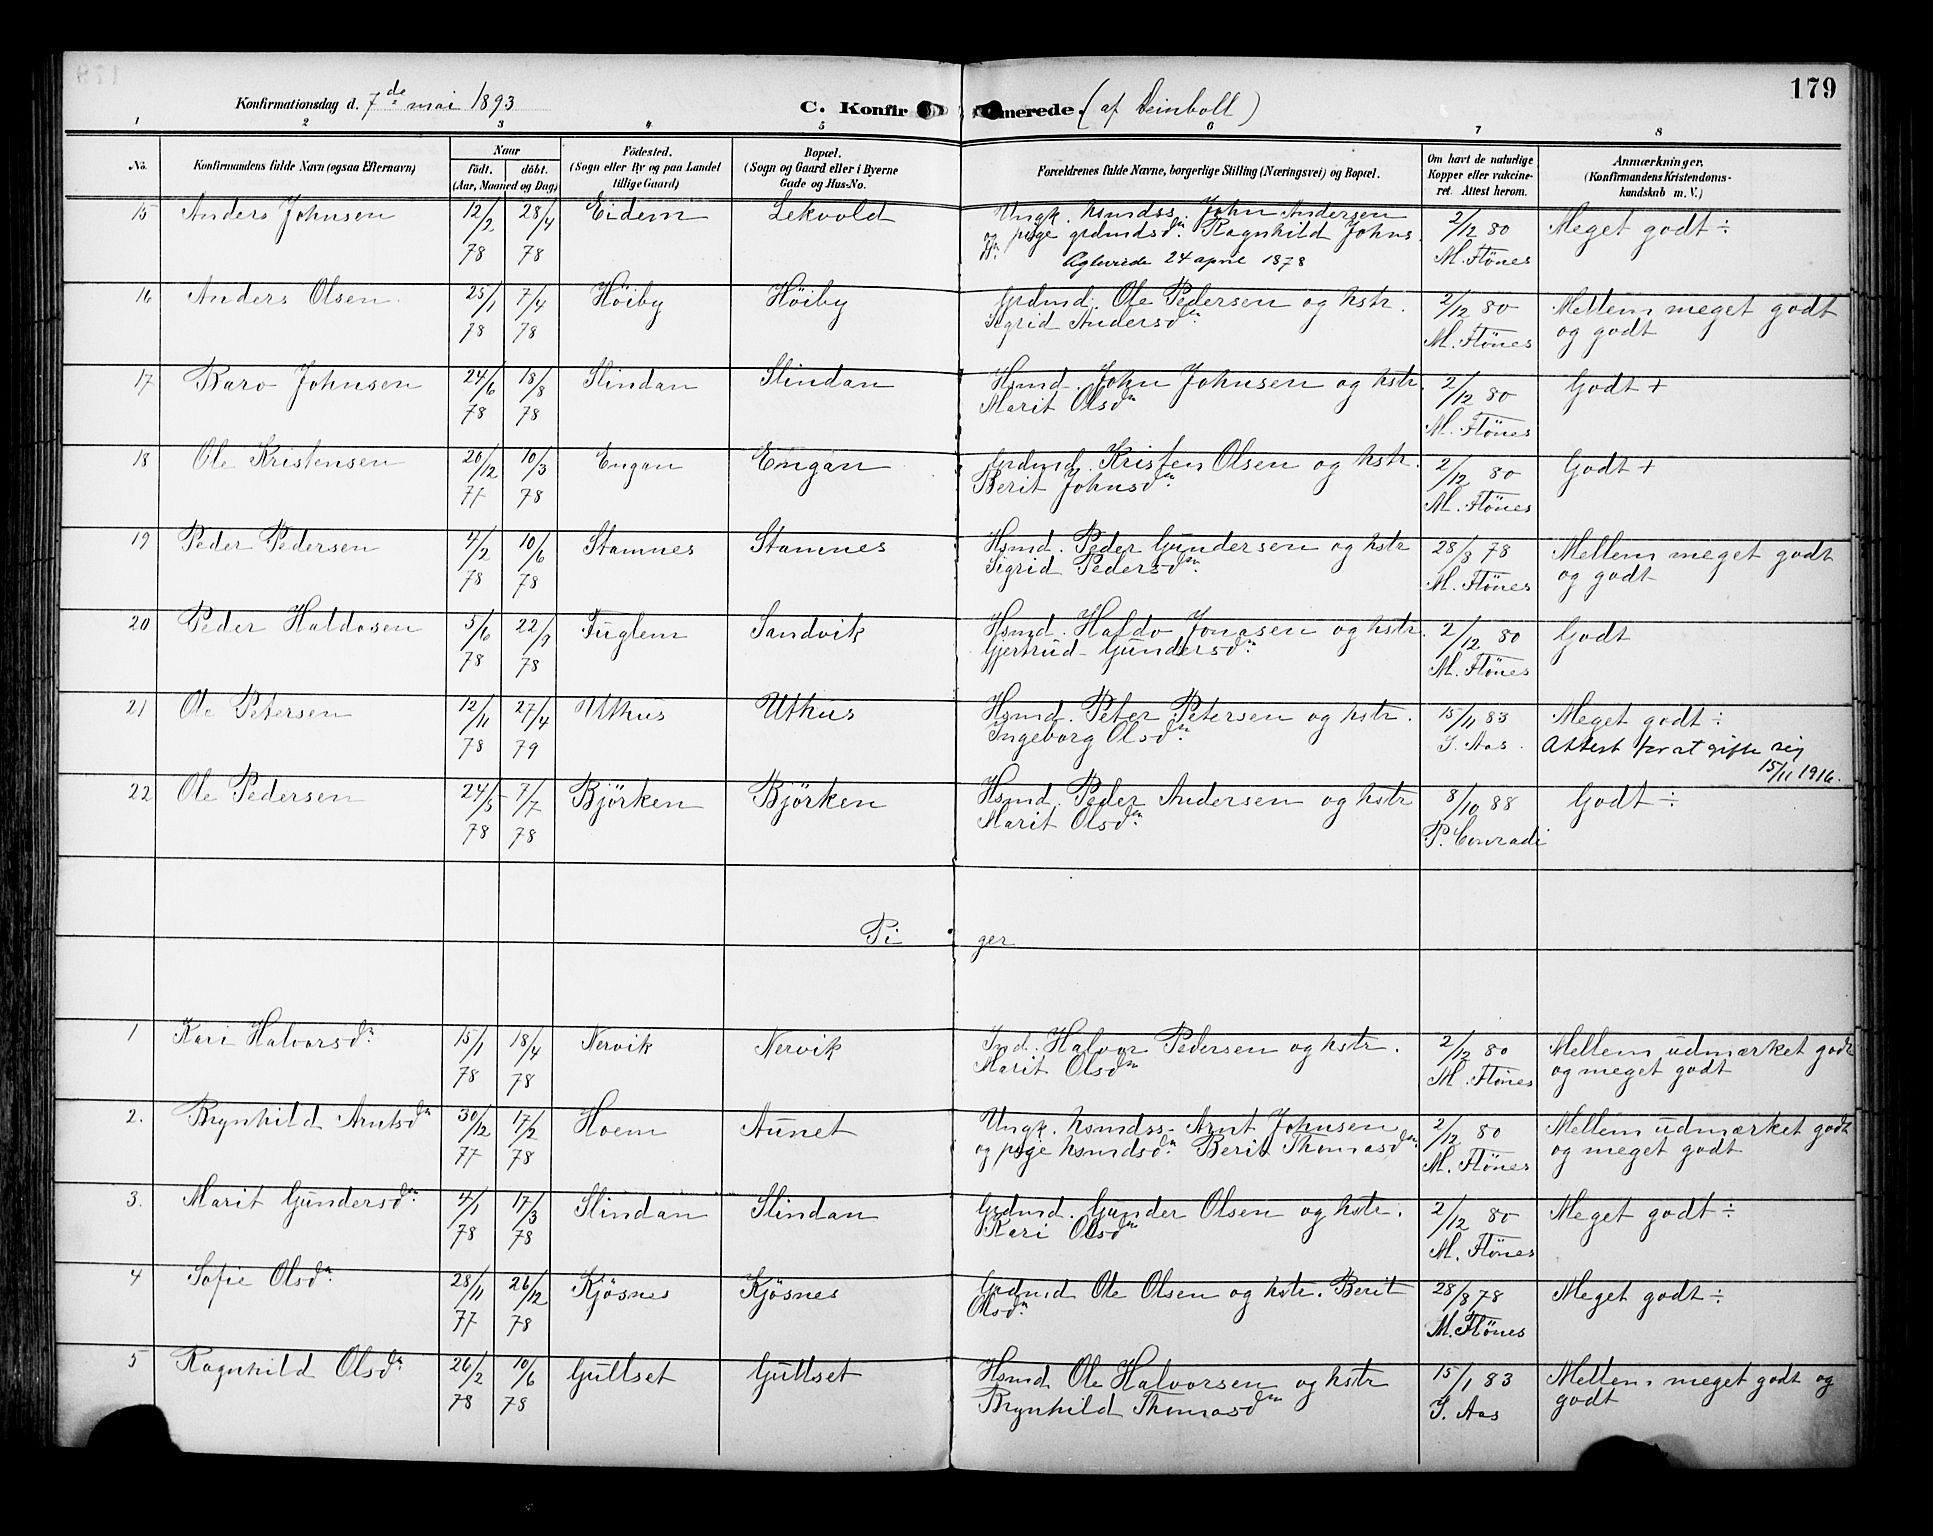 179
Konfirmationsdag d. 7de mai 1893
C. Konfirmerede. (af Deinboll)
1 2 3 4 5 6 7 8
No. Konfirmandens fulde Navn (ogsaa Efternavn) Naar Født. døbt. (Aar, Maaned og Dag) Fødested. (Sogn eller By og paa Landet tillige Gaard) Bopæl. (Sogn og Gaard eller i Byerne Gade og Hus-No. Forældrenes fulde Navne, borgerlige Stilling (Næringsvei) og Bopæl. Om havt de naturlige Kopper eller vaccineret. Attest herom. Anmærkninger. (Konfirmandens Kristendomskundskab m. V.)
15 Anders Johnsen 12/2 78 28/4 78 Eidem Lekvold Ungk. hsmdss. John Andersen og pige grdmdsdn. Ragnhild Johnsdn. 2/12 80 M. Flönes Meget godt ÷
24 april 1878
16 Anders Olsen 25/1 78 7/4 78 Höiby Höiby Grdmd. Ole Pedersen og hstr. Sigrid Andersdn. 2/12 80 M. Flönes Mellem meget godt og godt
17 Baro Johnsen 24/6 78 18/8 78 Slindan Slindan Hsmd. John Johnsen og hstr. Marit Olsdn. 2/12 80 M. Flönes Godt +
18 Ole Kristensen 26/12 77 10/3 78 Engan Engan Grdmd. Kristen Olsen og hstr. Berit Johnsdn. 2/12 80 M. Flönes Godt +
19 Peder Pedersen 4/2 78 10/6 78 Stamnes Stamnes Hsmd. Peder Gundersen og hstr Sigrid Pedersdn. 28/8 78 M. Flönes Mellem meget godt og godt
20 Peder Haldosen 5/6 78 22/7 78 Fuglem Sandvik Hsmd. Haldo Jonasen og hstr. Gjertrud Gundersdn. 2/12 80 M. Flönes Godt
21 Ole Petersen 12/11 78 27/4 79 Uthus Uthus Hsmd. Peter Petersen og hstr. Ingeborg Olsdn. 15/11 83 J. Aas. Meget godt ÷
Attest for at gifte sig 15/11 1916.
22 Ole Pedersen 24/5 78 7/7 78 Björken Björken Hsmd. Peder Andersen og hstr Marit Olsdn. 8/10 88 P. Conradi Godt ÷
Piger
1 Kari Halvorsdn. 15/1 78 18/4 78 Nervik Nervik Ind. Halvor Pedersen og hstr. Marit Olsdn 2/12 80 M. Flönes Mellem udmærket godt og meget godt
2. Brynhild Arntsdn 30/12 77 17/2 78 Hoem Aunet Ungk. hsmdss. Arnt Johnsen og pige hsmdsdn. Berit Thomasdn. 2/12 80 M. Flönes Mellem udmærket godt og meget godt
3. Marit Gundersdn. 4/1 78 17/3 78 Slindan Slindan Grdmd. Gunder Olsen og hstr. Kari Olsdn 2/12 80 M. Flönes Meget godt ÷
4 Sofie Olsdn. 28/11 77 26/12 78 Kjösnes Kjösnes Grdmd Ole Olsen og hstr. Berit Olsdn 28/8 78 M. Flönes Meget godt ÷
5 Ragnhild Olsdn 26/2 78 10/6 78 Gullset Gullset Hsmd Ole Halvorsen og hstr Brynhild Thomasdn 15/1 83 J. Aas Mellem meget godt og godt